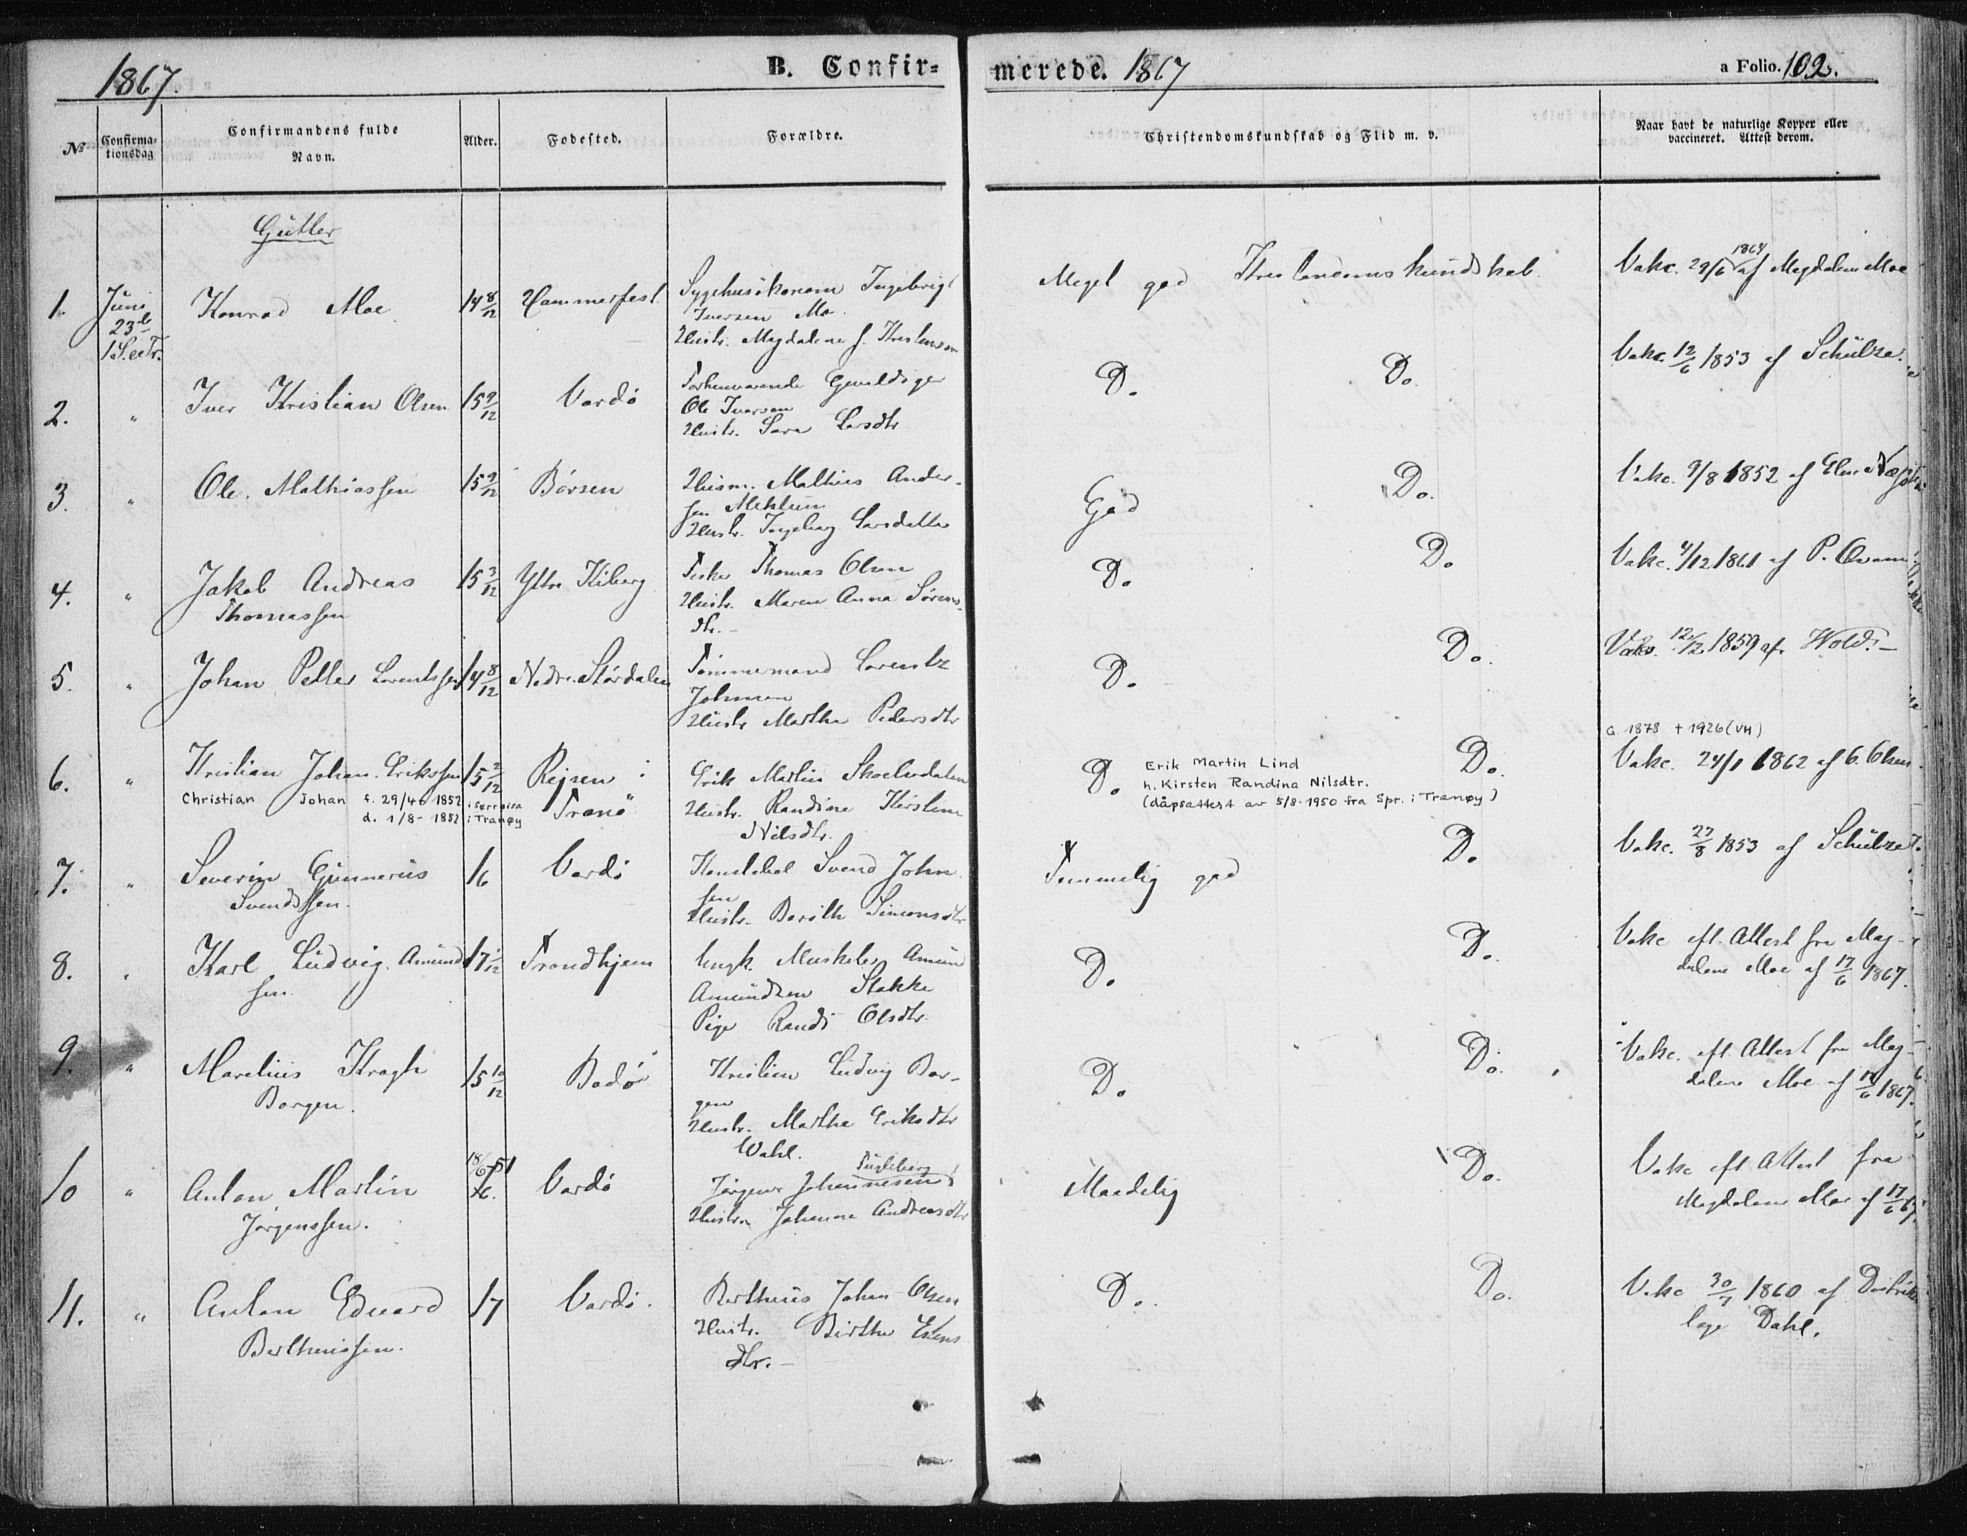 1867.
B. Confir=
merede. 1867
a Folio. 102.
No
Confirma-
tionsdag
Confirmandens fulde
Navn.
Alder.
Fødested.
Forældre.
Christendomskundskab og Flid m. v.
Naar havt de naturlige Kopper eller
vaccineret. Attest derom.
Gutter
1. Juni
23de
1 S. e Tr.
Konrad Moe
14 8/12
Hammerfest
Sygehusøkonom Ingebrigt
Iversen Mo.
Hustr. Magdalene f. Kristensen
Meget god Kristendomskundskab
Vakc. 29/6 1864 af Magdalene Moe
2. "
Iver Kristian Olsen
15 9/12
Vardö
Forhenværende Gevaldiger
Ole Iversen
Hustr. Sara Larsdtr
Do. Do.
Vakc. 12/6 1853 af Schülze.
3. "
Ole Mathiassen
15 9/12
Börsen
Husm. Mathias Ander-
sen
Hustr. Ingeborg Larsdatter
God Do.
Vakc. 9/8 1852 af
4. "
Jakob Andreas
Thomassen
15 3/12
Yttre Kiberg
Fisker Thomas Olsen
Hustr. Maren Anna Sörens-
dtr.
Do. Do.
Vakc. 4/12 1861 af P.
5. "
Johan Petter Lorentssen
14 8/12
Nedre Stördalen
Tömmermand Lorentz
Johnsen
Hustr Martha Pedersdtr
Do. Do.
Vakc. 12/12 1859 af Wold.
6. "
Kristian Johan Erikssen
Christian Johan f. 29/4 1852 i Sørreisa
d. 1/8- 1852 i Tranøy
15 2/12
Rejsen i
Tranö
Erik Martin
Hustr. Randine Kirstine
Nilsdtr.
Do.
Erik Martin Lind
h. Kirsten Randina Nilsdtr.
(dåpsattest av 5/8-1950 fra Spr. i Tranøy)
Do.
G. 1878 + 1926 (VH)
Vakc. 24/1 1862 af G. Olsen
7. "
Severin Gunnerius
Svendssen.
16
Vardö
Konstabel Svend John
sen
Hustr. Berith Simonsdtr
Temmelig god Do.
Vakc. 27/8 1853 af Schülze
8. "
Karl Ludvig Amund
sen
17 1/12
Trondhjem
Ungk. Musketer Amund
Amundsen Stokke
Pige Randi Olsdtr.
Do. Do.
Vakc eft. Attest fra Mag-
dalene Moe af 17/6 1867.
9. "
Marelius Kragh
Borgen.
15 10/12
Bodö
Kristian Ludvig Bor-
gen
Hustr. Martha Eriksdtr
Wahl.
Do. Do.
Vakc. eft. Attest fra Mag-
dalene Moe af 17/6 1867.
10 "
Anton Martin
Jörgenssen.
18/6 51
16.
Vardö
Jörgen Johannesen
Hustru Johanna Andreasdtr
Maadelig Do.
Vakc eft Attest fra
Magdalene Moe af 17/6 67.
11. "
Anton Edvard
Bertheussen.
17
Vardö.
Bertheus Johan Olsen
Hustr. Birthe
dtr.
Do. Do.
Vakc 30/7 1860 af Distrikts
læge Dahl.